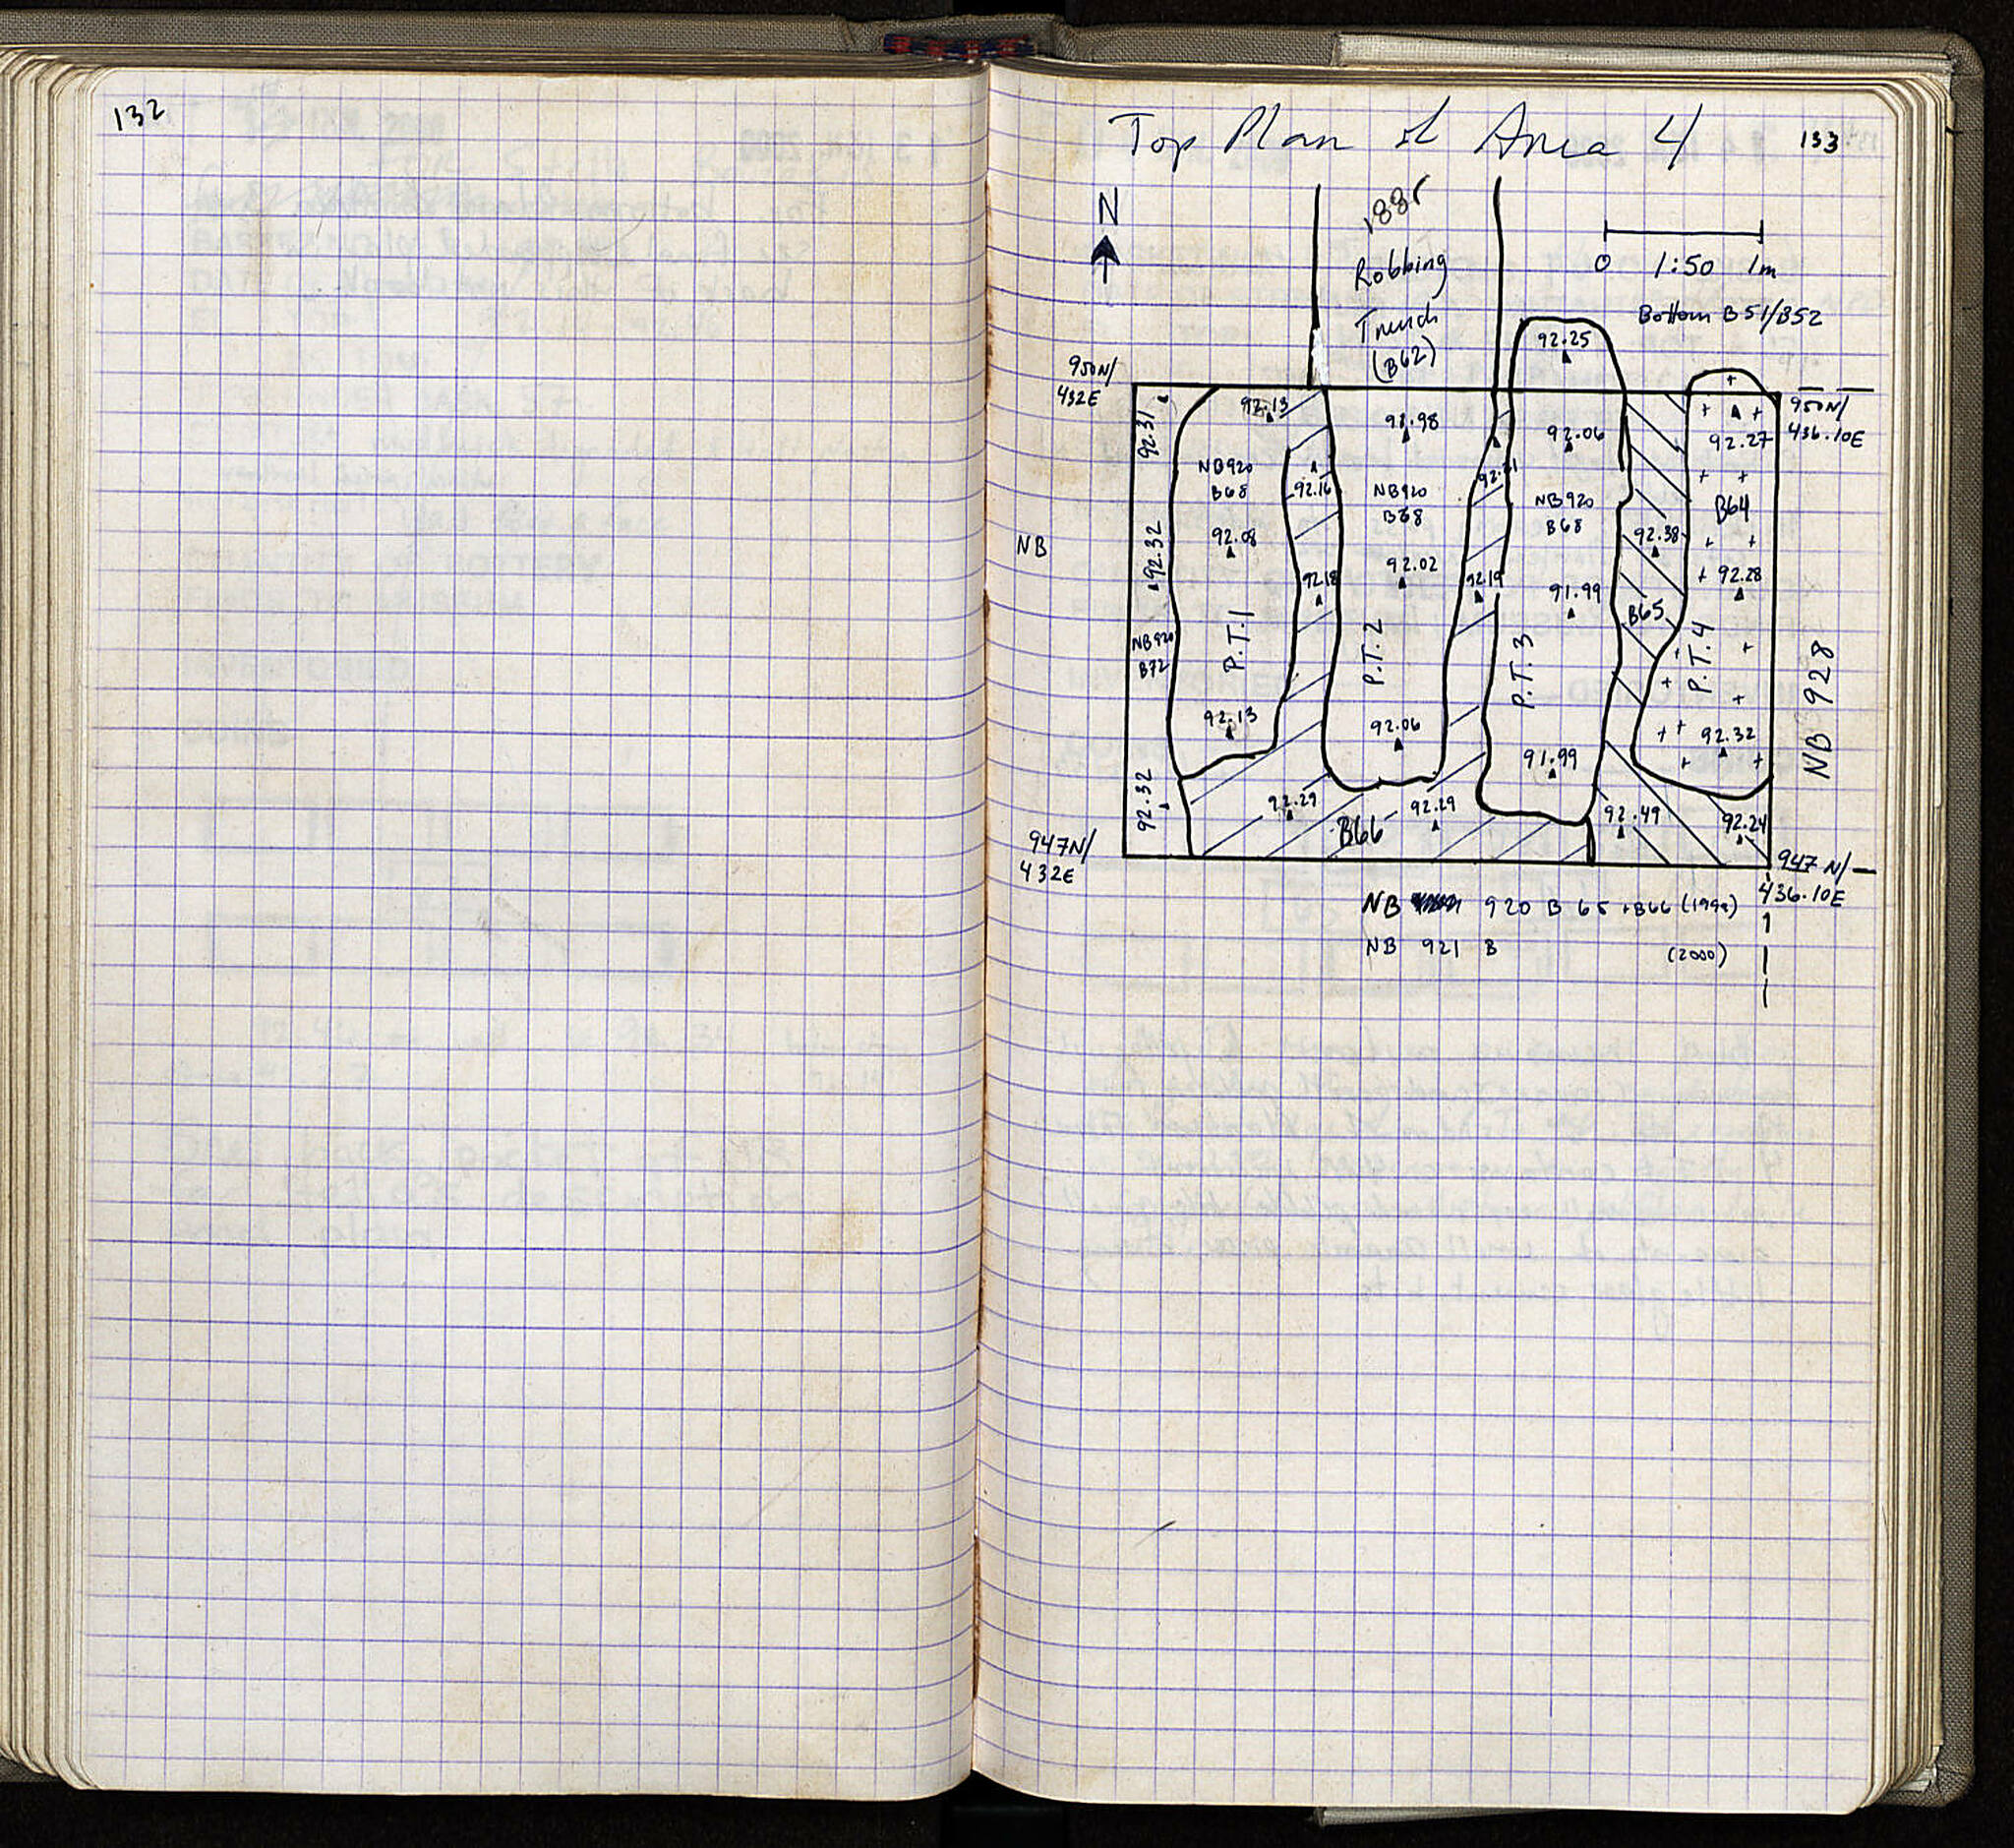 132
Top Plan of Area 4
133
N
1885
Robbing
Trench
(B62)
0 1:50 1m
Bottom B51/B52
950N/
432E
950N/
436.10E
92.25
92.31
92.13
91.98
92.06
92.27
NB920
B68
92.16
NB920
B68
92.21
NB920
B68
B64
NB
92.32
92.08
92.02
92.38
92.18
92.19
91.99
92.28
B65
NB920
B72
P.T.1
P.T.2
P.T.3
P.T.4
NB 928
92.13
92.06
91.99
92.32
92.32
92.29
92.29
92.49
92.24
B66
947N/
432E
947 N/
436.10E
NB 920 B 65 + B66 (1999)
NB 921 B (2000)